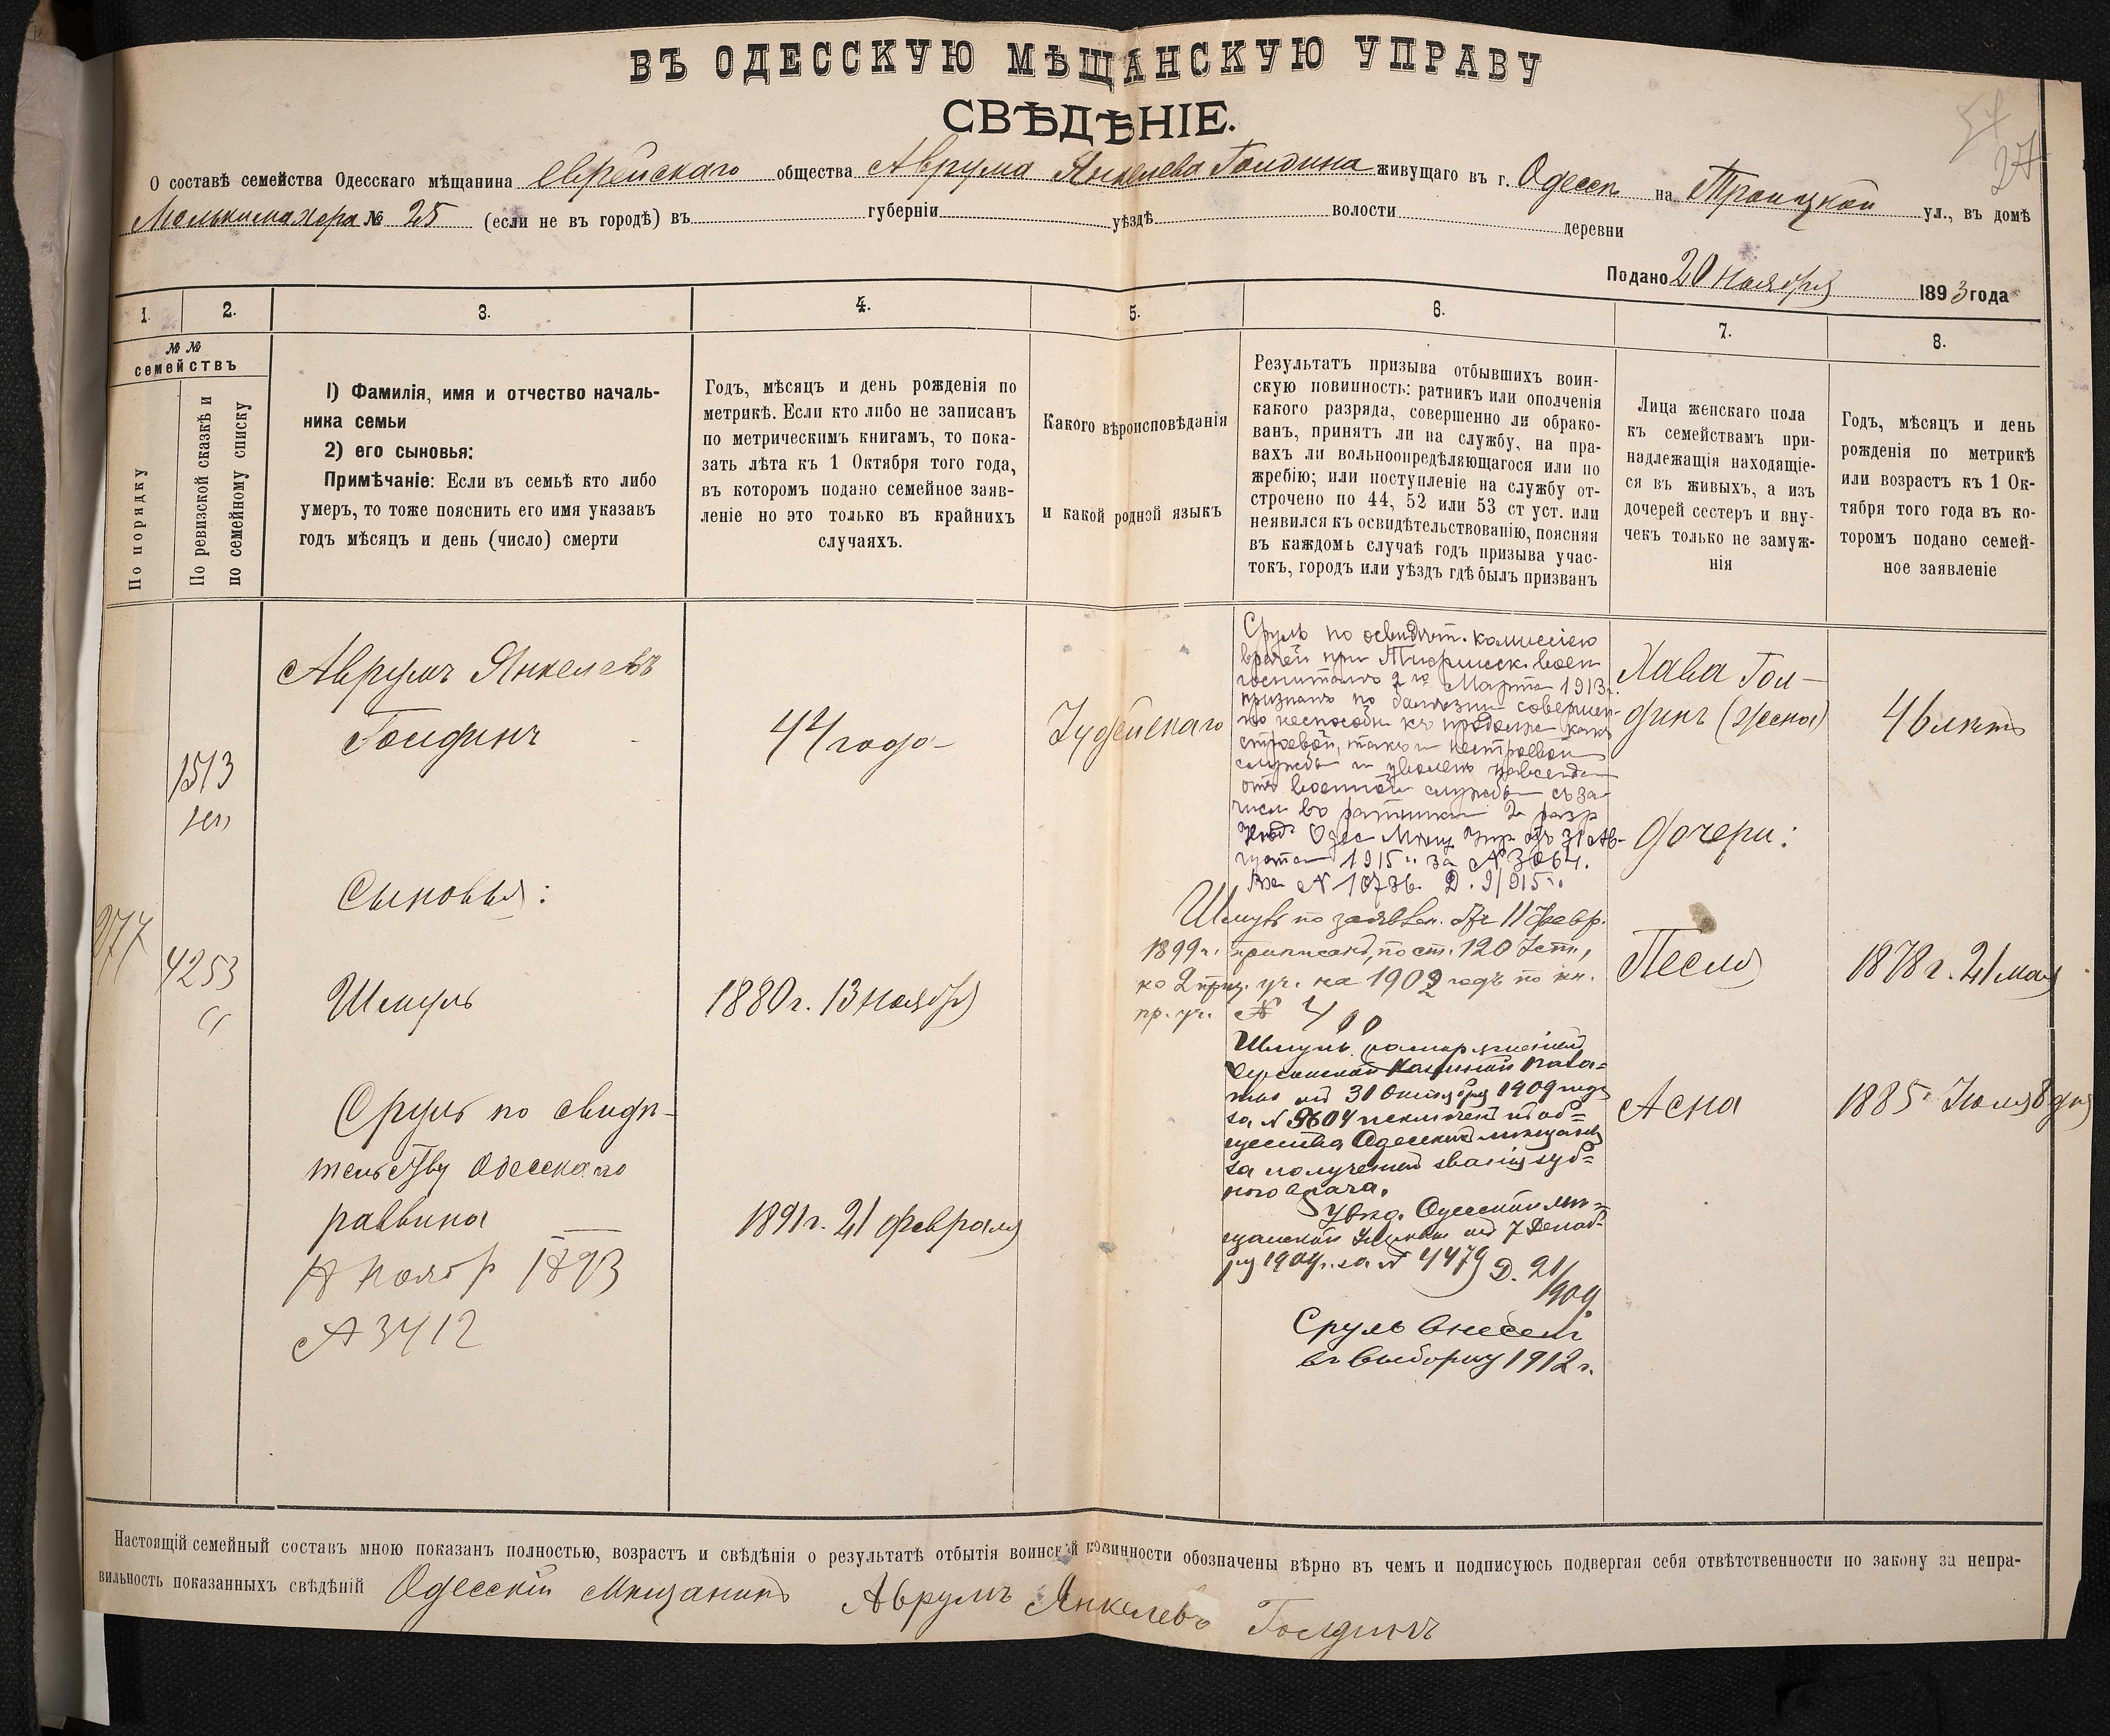 ВЪ ОДЕССКУЮ МѢЩАНСКУЮ УПРАВУ
СВѢДѢНІЕ.
27
О составѣ семейства Одесскаго мѣщанина еврейскаго общества Аврума Янкелева Голдина живущаго въ г. Одессѣ на Троицкой ул., въ домѣ
№ 25 (если не въ городѣ) въ губерніи уѣздѣ волости деревни
Подано 20 Ноября 1893 года
1.
2.
3.
4.
5.
6.
7.
8.
№ №
семействъ
По порядку
По ревизской сказкѣ и
по семейному списку
1) Фамилія, имя и отчество началь-
ника семьи
2) его сыновья:
Примѣчаніе: Если въ семьѣ кто либо
умеръ, то тоже пояснить его имя указавъ
годъ мѣсяцъ и день (число) смерти
Годъ, мѣсяцъ и день рожденія по
метрикѣ. Если кто либо не записанъ
по метрическимъ книгамъ, то пока-
зать лѣта къ 1 Октября того года,
въ которомъ подано семейное заяв-
леніе но это только въ крайнихъ
случаяхъ.
Какого вѣроисповѣданія
и какой родной языкъ
Результатъ призыва отбывшихъ воин-
скую повинность: ратникъ или ополченія
какого разряда, совершенно ли обрако-
ванъ, принятъ ли на службу, на пра-
вахъ ли вольноопредѣляющагося или по
жребію; или поступленіе на службу от-
строчено по 44, 52 или 53 ст уст. или
неявился къ освидѣтельствованію, поясняя
въ каждомъ случаѣ годъ призыва учас-
токъ, городъ или уѣздъ гдѣ былъ призванъ
Лица женскаго пола
къ семействамъ при-
надлежащія находящіе-
ся въ живыхъ, а изъ
дочерей сестеръ и вну-
чекъ только не замуж-
нія
Годъ, мѣсяцъ и день
рожденія по метрикѣ
или возрастъ къ 1 Ок-
тября того года въ ко-
торомъ подано семей-
ное заявленіе
277
1513
4253
Аврумъ Янкелевъ
Голдинъ
44 года
Іудейскаго
Сыновья:
Шмуль
1880 г. 13 Ноября
Сруль по свидѣ-
тельству Одесскаго
раввина
Ноябр 1893
3412
1891 г. 21 февраля
Сруль по освидѣт. комиссіею
врачей при воен
госпиталѣ 2го Марта 1913 г.
признанъ по болѣзни совершен-
но неспособн къ продолж какъ
строевой, такъ и нестроевой
службы и уволенъ навсегда
отъ военной службы съ за-
числ въ ратники 2 разр
Одес Мѣщ Упр отъ 31 Ав-
густа 1915 г. за № 3064.
Вх № 10736. Д. 9/915 г.
Шмуль по заявлен. отъ 11 февр.
1899 г. приписанъ, по ст. 120 Уст.,
ко 2 приз. уч. на 1902 годъ по кн.
пр. уч. № 400
Шмуль распоряженіем
Херсонской Казенной Пала-
ты от 31 Октября 1909 года
за № 9604 исключенъ из об-
щества Одесских мѣщанъ
за полученіем званія зуб-
ного врача.
Увѣд. Одесской мѣ-
щанской Управы от 7 Декаб-
ря 1909 г. за № 4479 Д. 21/
909
Сруль внесенъ
въ выборку 1912 г.
Хава Гол-
динъ (жена)
46 лѣтъ
Дочери:
Песля
1878 г. 21 мая
Асна
1885 Іюля 8 дня
Настоящій семейный составъ мною показанъ полностью, возрастъ и свѣдѣнія о результатѣ отбытія воинской повинности обозначены вѣрно въ чемъ и подписуюсь подвергая себя отвѣтственности по закону за непра-
вильность показанныхъ свѣдѣній Одесскій Мѣщанинъ Аврумъ Янкелевъ Голдинъ